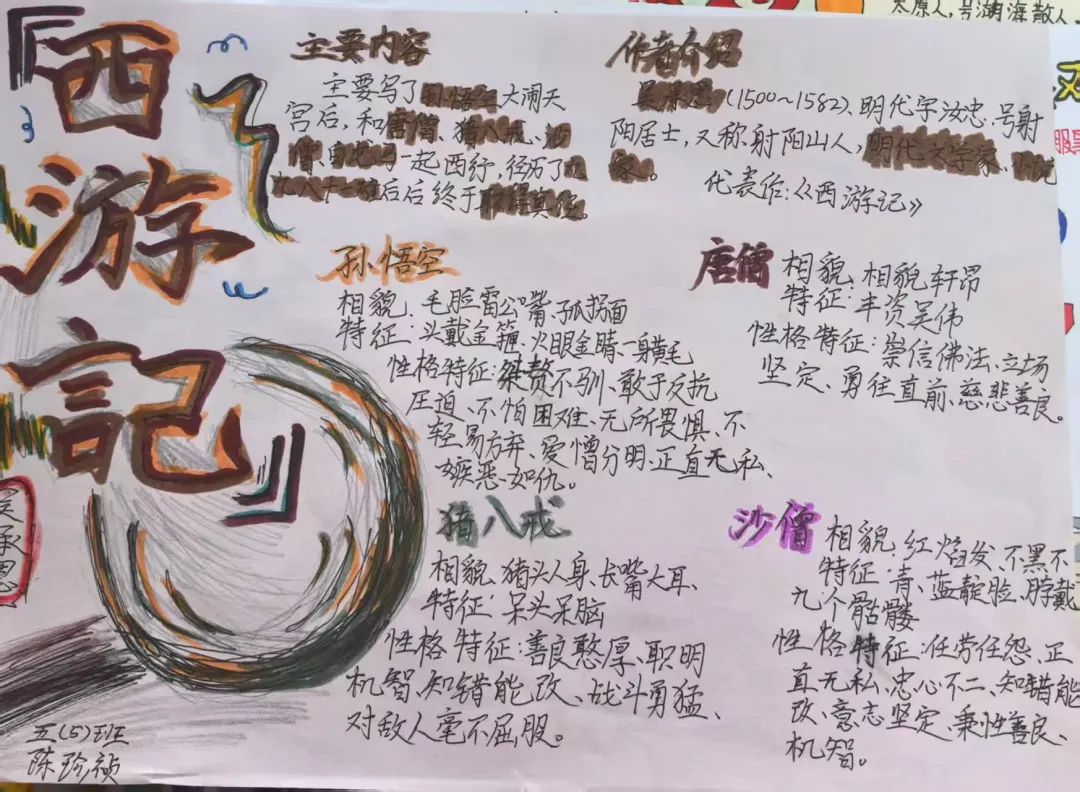 『西游記』
吴承恩
五(5)班
陈珍祯
主要内容
主要写了孙悟空大闹天
宫后，和唐僧、猪八戒、沙
僧、白龙马一起西行，经历了九
九八十一难后后终于取得真经。
作者介绍
吴承恩(1500~1582)、明代字汝忠、号射
阳居士，又称，射阳山人，明代文学家、小说
家。
代表作：《西游记》
孙悟空
相貌、毛脸雷公嘴、孤拐面
特征：头戴金箍、火眼金睛、一身黄毛
性格特征：桀骜不驯、敢于反抗
压迫、不怕困难、无所畏惧、不
轻易方弃、爱憎分明、正直无私、
嫉恶如仇。
唐僧
相貌、相貌轩昂
特征：丰资吴伟
性格特征：崇信佛法、立场
坚定、勇往直前、慈悲善良。
猪八戒
相貌、猪头人身、长嘴大耳、
特征：呆头呆脑
性格特征：善良憨厚、职明
机智、知错能改、战斗勇猛、
对敌人毫不屈服。
沙僧
相貌、红焰发、不黑不
特征：青、蓝靛脸、脖戴
九个骷髅
性格特征：任劳任怨、正
直无私、忠心不二、知错能
改、意志坚定、秉性善良、
机智。
太原人，号湖海散人，